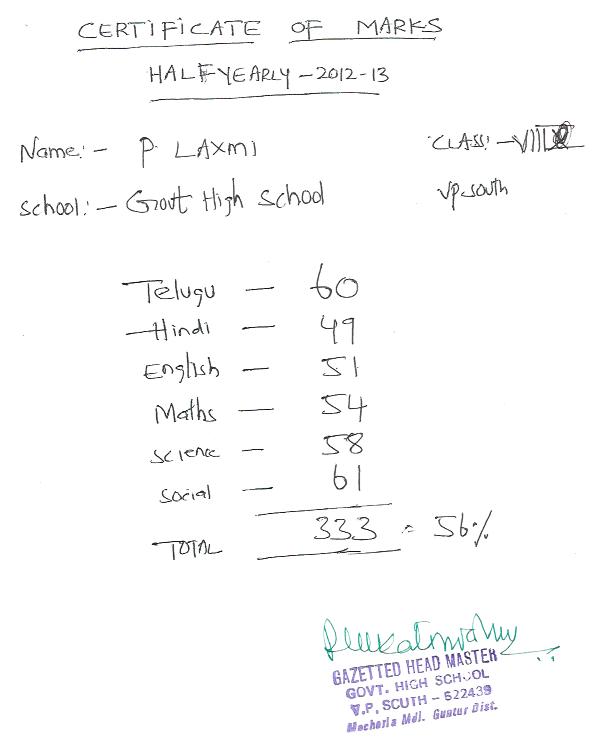 CERTIFICATE OF MARKS
HALFYEARLY - 2012-13
Name:- P LAXMI CLASS:- VIII
School:- Govt High School VP. South
Telugu - 60
Hindi - 49
English - 51
Maths - 54
Science - 58
Social - 61
TOTAL 333 = 56%
GAZETTED HEAD MASTER
GOVT. HIGH SCHOOL
V.P. SOUTH - 522439
Macherla Mdl. Guntur Dist.